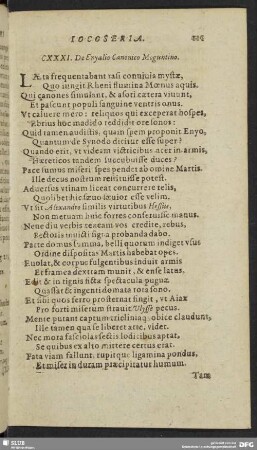 IOCOSERIA.
CXXXI. De Enyalio Canonico Moguntino.
LÆta frequentabant rasi conuiuia mystæ,
Quo iungit Rheni flumina Mœnus aquis.
Qui canones simulant, & a sori cætera viuunt,
Et pascunt populi sanguine ventris onus.
Vt caluere mero: reliquos qui exceperat hospes,
Ebrius hoc madido reddidit ore sonos:
Quid tamen auditis, quam spem proponit Enyo,
Quantum de Synodo dicitur esse super?
Quando erit, vt videam victricibus acer in armis,
Hæreticos tandem succubuisse duces?
Pace sumus miseri: spes pendet ab omine Martis.
Ille decus nostrum restituisse potest.
Aduersus vtinam liceat concurrere telis,
Quolibet hic fæuo sæuior esse velim.
Vt sit Alexandro similis virtutibus Hessus,
Non metuam huic fortes conseruisse manus.
Neue diu verbis teneam vos credite, rebus,
Pectoris inuicti signa probanda dabo.
Parte domus summa, belli quorum indiget vsus
Ordine dispositas Martis habebat opes.
Euolat, & corpus fulgentibus induit armis
Et framea dextram munit, & ense latus.
Edit & in tignis ficta spectacula pugnæ
Quassat & ingenti domata tota sono.
Et sibi quos ferro prosternat fingit, vt Aiax
Pro forti miserum strauit Ulysse pecus.
Mente putant captum triclinia obice claudunt,
Ille tamen qua se liberet arte, videt.
Nec mora fasciolas sectis lodicibus aptat,
Se quibus ex alto mittere certus erat.
Fata viam fallunt, rupitque ligamina pondus,
Et miser in duram præcipitatur humum.
Tam
SLUB